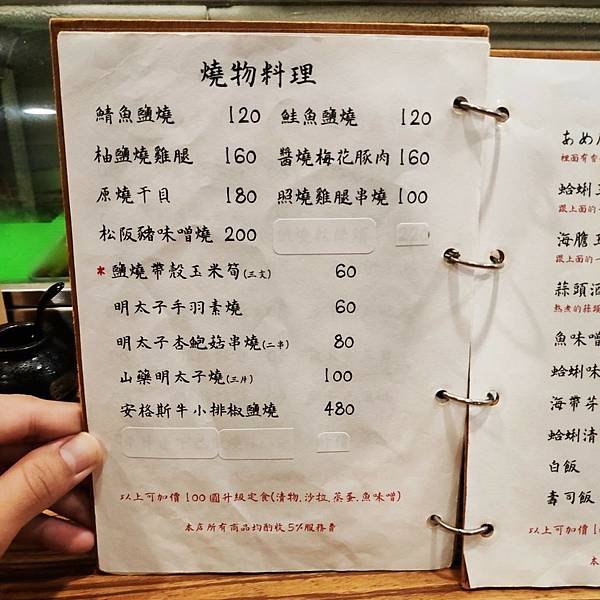 燒物料理
鯖魚鹽燒 120 鮭魚鹽燒 120
柚鹽燒雞腿 160 醬燒梅花豚肉 160
原燒干貝 180 照燒雞腿串燒 100
松阪豬味噌燒 200
*鹽燒帶殼玉米筍(三支) 60
明太子手羽素燒 60
明太子杏鮑菇串燒(二串) 80
山藥明太子燒(三片) 100
安格斯牛小排椒鹽燒 480
以上可加價100圓升級定食(漬物.沙拉.蒸蛋.魚味噌)
本店所有商品均酌收5%服務費
あめ
裡面有
蛤蜊
跟上面的一
海膽
跟上面的一
蒜頭
熬煮的蒜頭
魚味噌
蛤蜊味
海帶芽
蛤蜊清
白飯
壽司飯
以上可加價1
本